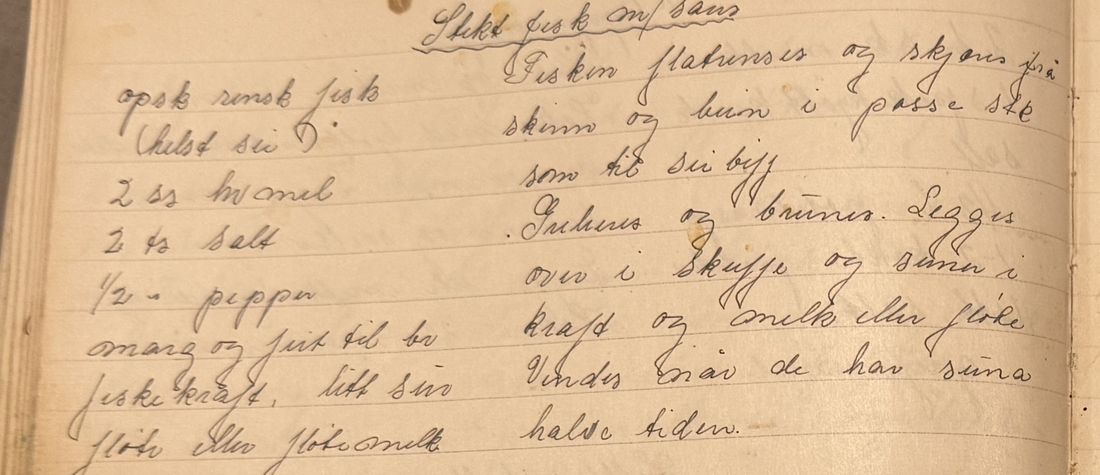 Stekt fisk m/ saus
opsk rensk fisk
(helst sei)
2 ss hv mel
2 ts salt
1/2 " pepper
marg og fett til br
fiskekraft, litt sur
fløte eller fløtemelk
Fisken flatrenses og skjæres frå
skinn og bein i passe stk
som til sei biff
Griljeres og brunes. Legges
over i skuffe og surrer i
kraft og melk eller fløte
Vendes når de har surra
halve tiden.